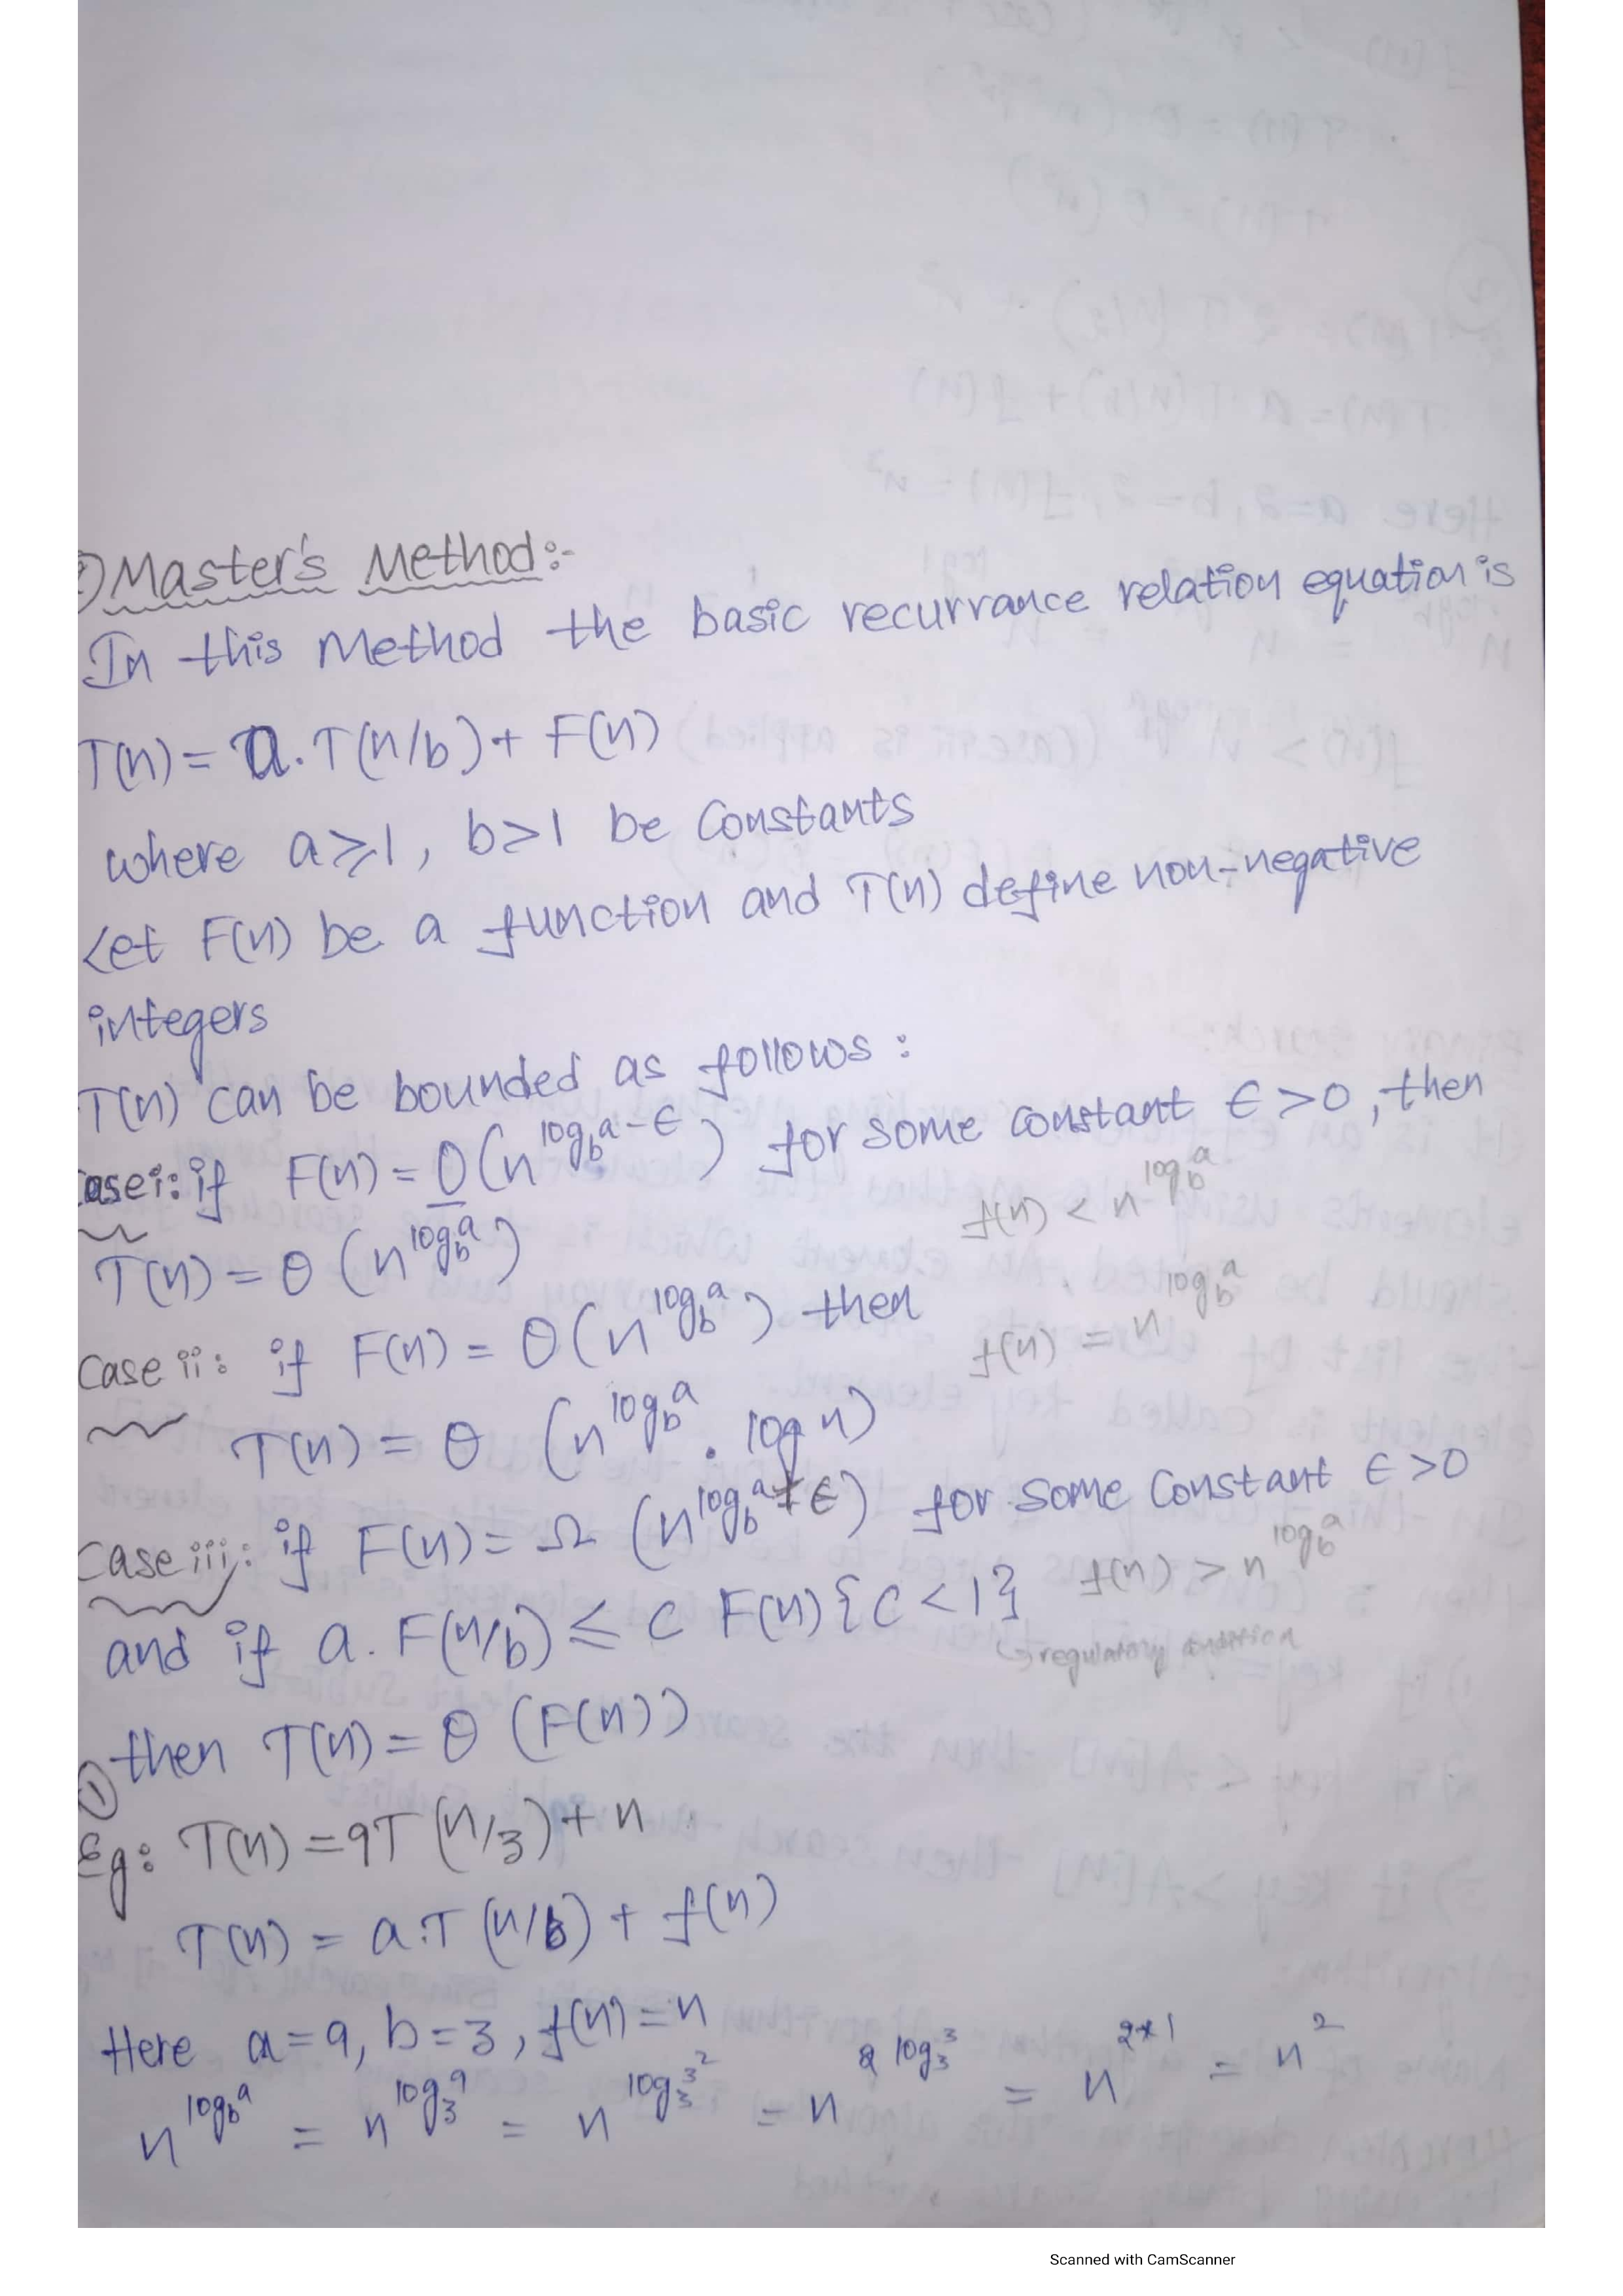 Master's Method:-
In this Method the basic recurrance relation equation is
T(n) = a.T(n/b) + F(n)
where a⩾1, b>1 be Constants
Let F(n) be a function and T(n) define non-negative
integers
T(n) can be bounded as follows :
Case i: if F(n) = O(n^(log_b a - ϵ)) for some constant ϵ>0, then
f(n) < n^(log_b a)
T(n) = θ (n^(log_b a))
Case ii: if F(n) = θ(n^(log_b a)) then
f(n) = n^(log_b a)
T(n) = θ (n^(log_b a) . log n)
Case iii: if F(n) = Ω (n^(log_b a + ϵ)) for some constant ϵ>0
f(n) > n^(log_b a)
and if a. F(n/b) ⩽ c F(n) {c<1}
regulatory condition
then T(n) = θ (F(n))
①
Eg: T(n) = 9T (n/3) + n
T(n) = a.T (n/b) + f(n)
Here a=9, b=3, f(n)=n
n^(log_b a) = n^(log_3 9) = n^(log_3 3^2) = n^(2 log_3 3) = n^(2*1) = n^2
Scanned with CamScanner